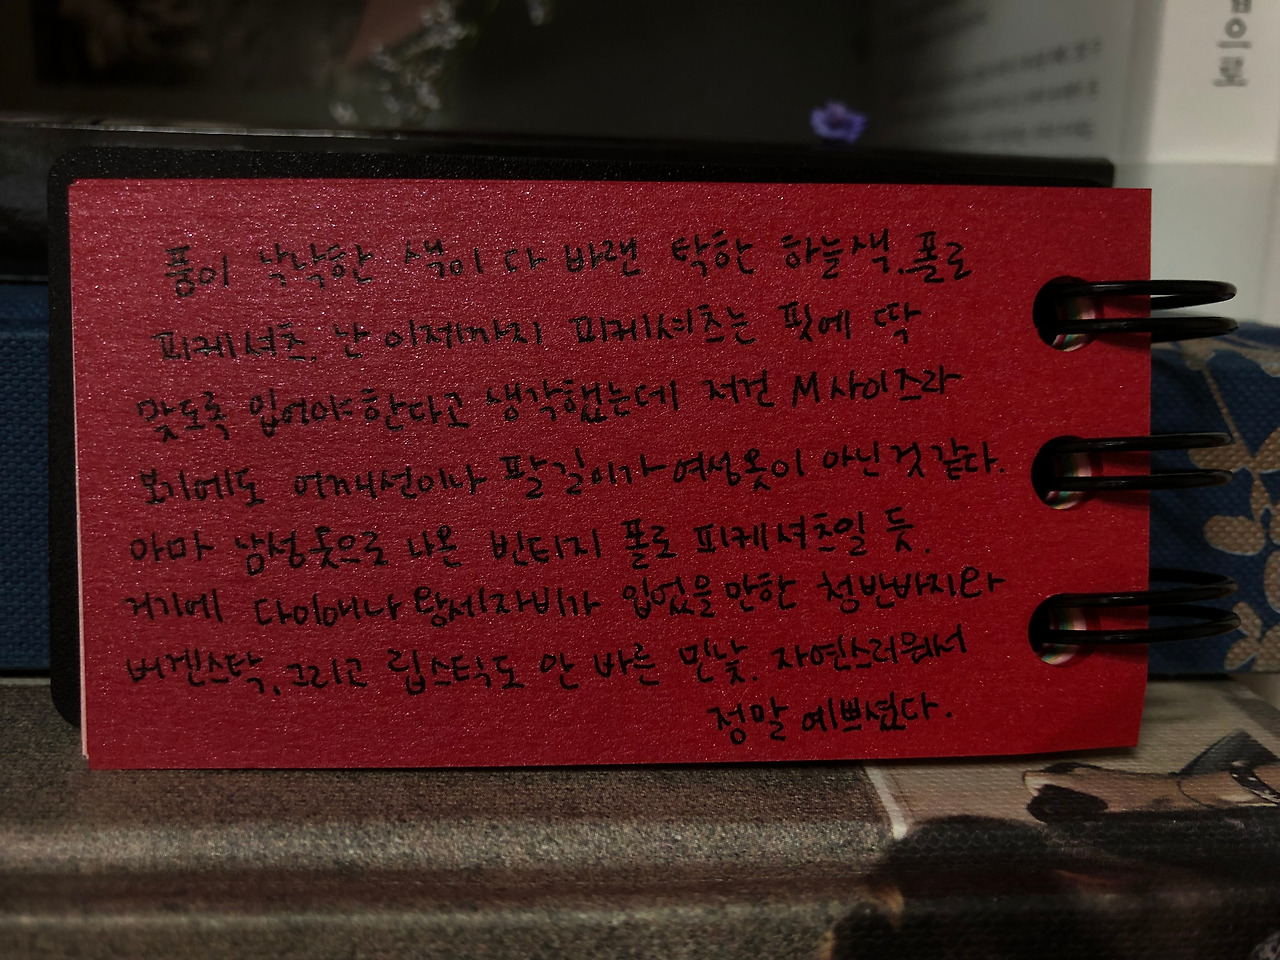 품이 낙낙한 색이 다 바랜 탁한 하늘색. 폴로
피케셔츠. 난 이제까지 피케셔츠는 핏에 딱
맞도록 입어야 한다고 생각했는데 저건 M사이즈라
보기에도 어깨선이나 팔길이가 여성옷이 아닌것 같다.
아마 남성옷으로 나온 빈티지 폴로 피케셔츠일 듯.
거기에 다이애나 왕세자비가 입었을만한 청반바지와
버켄스탁. 그리고 립스틱도 안 바른 민낯. 자연스러워서
정말 예쁘셨다.
으로